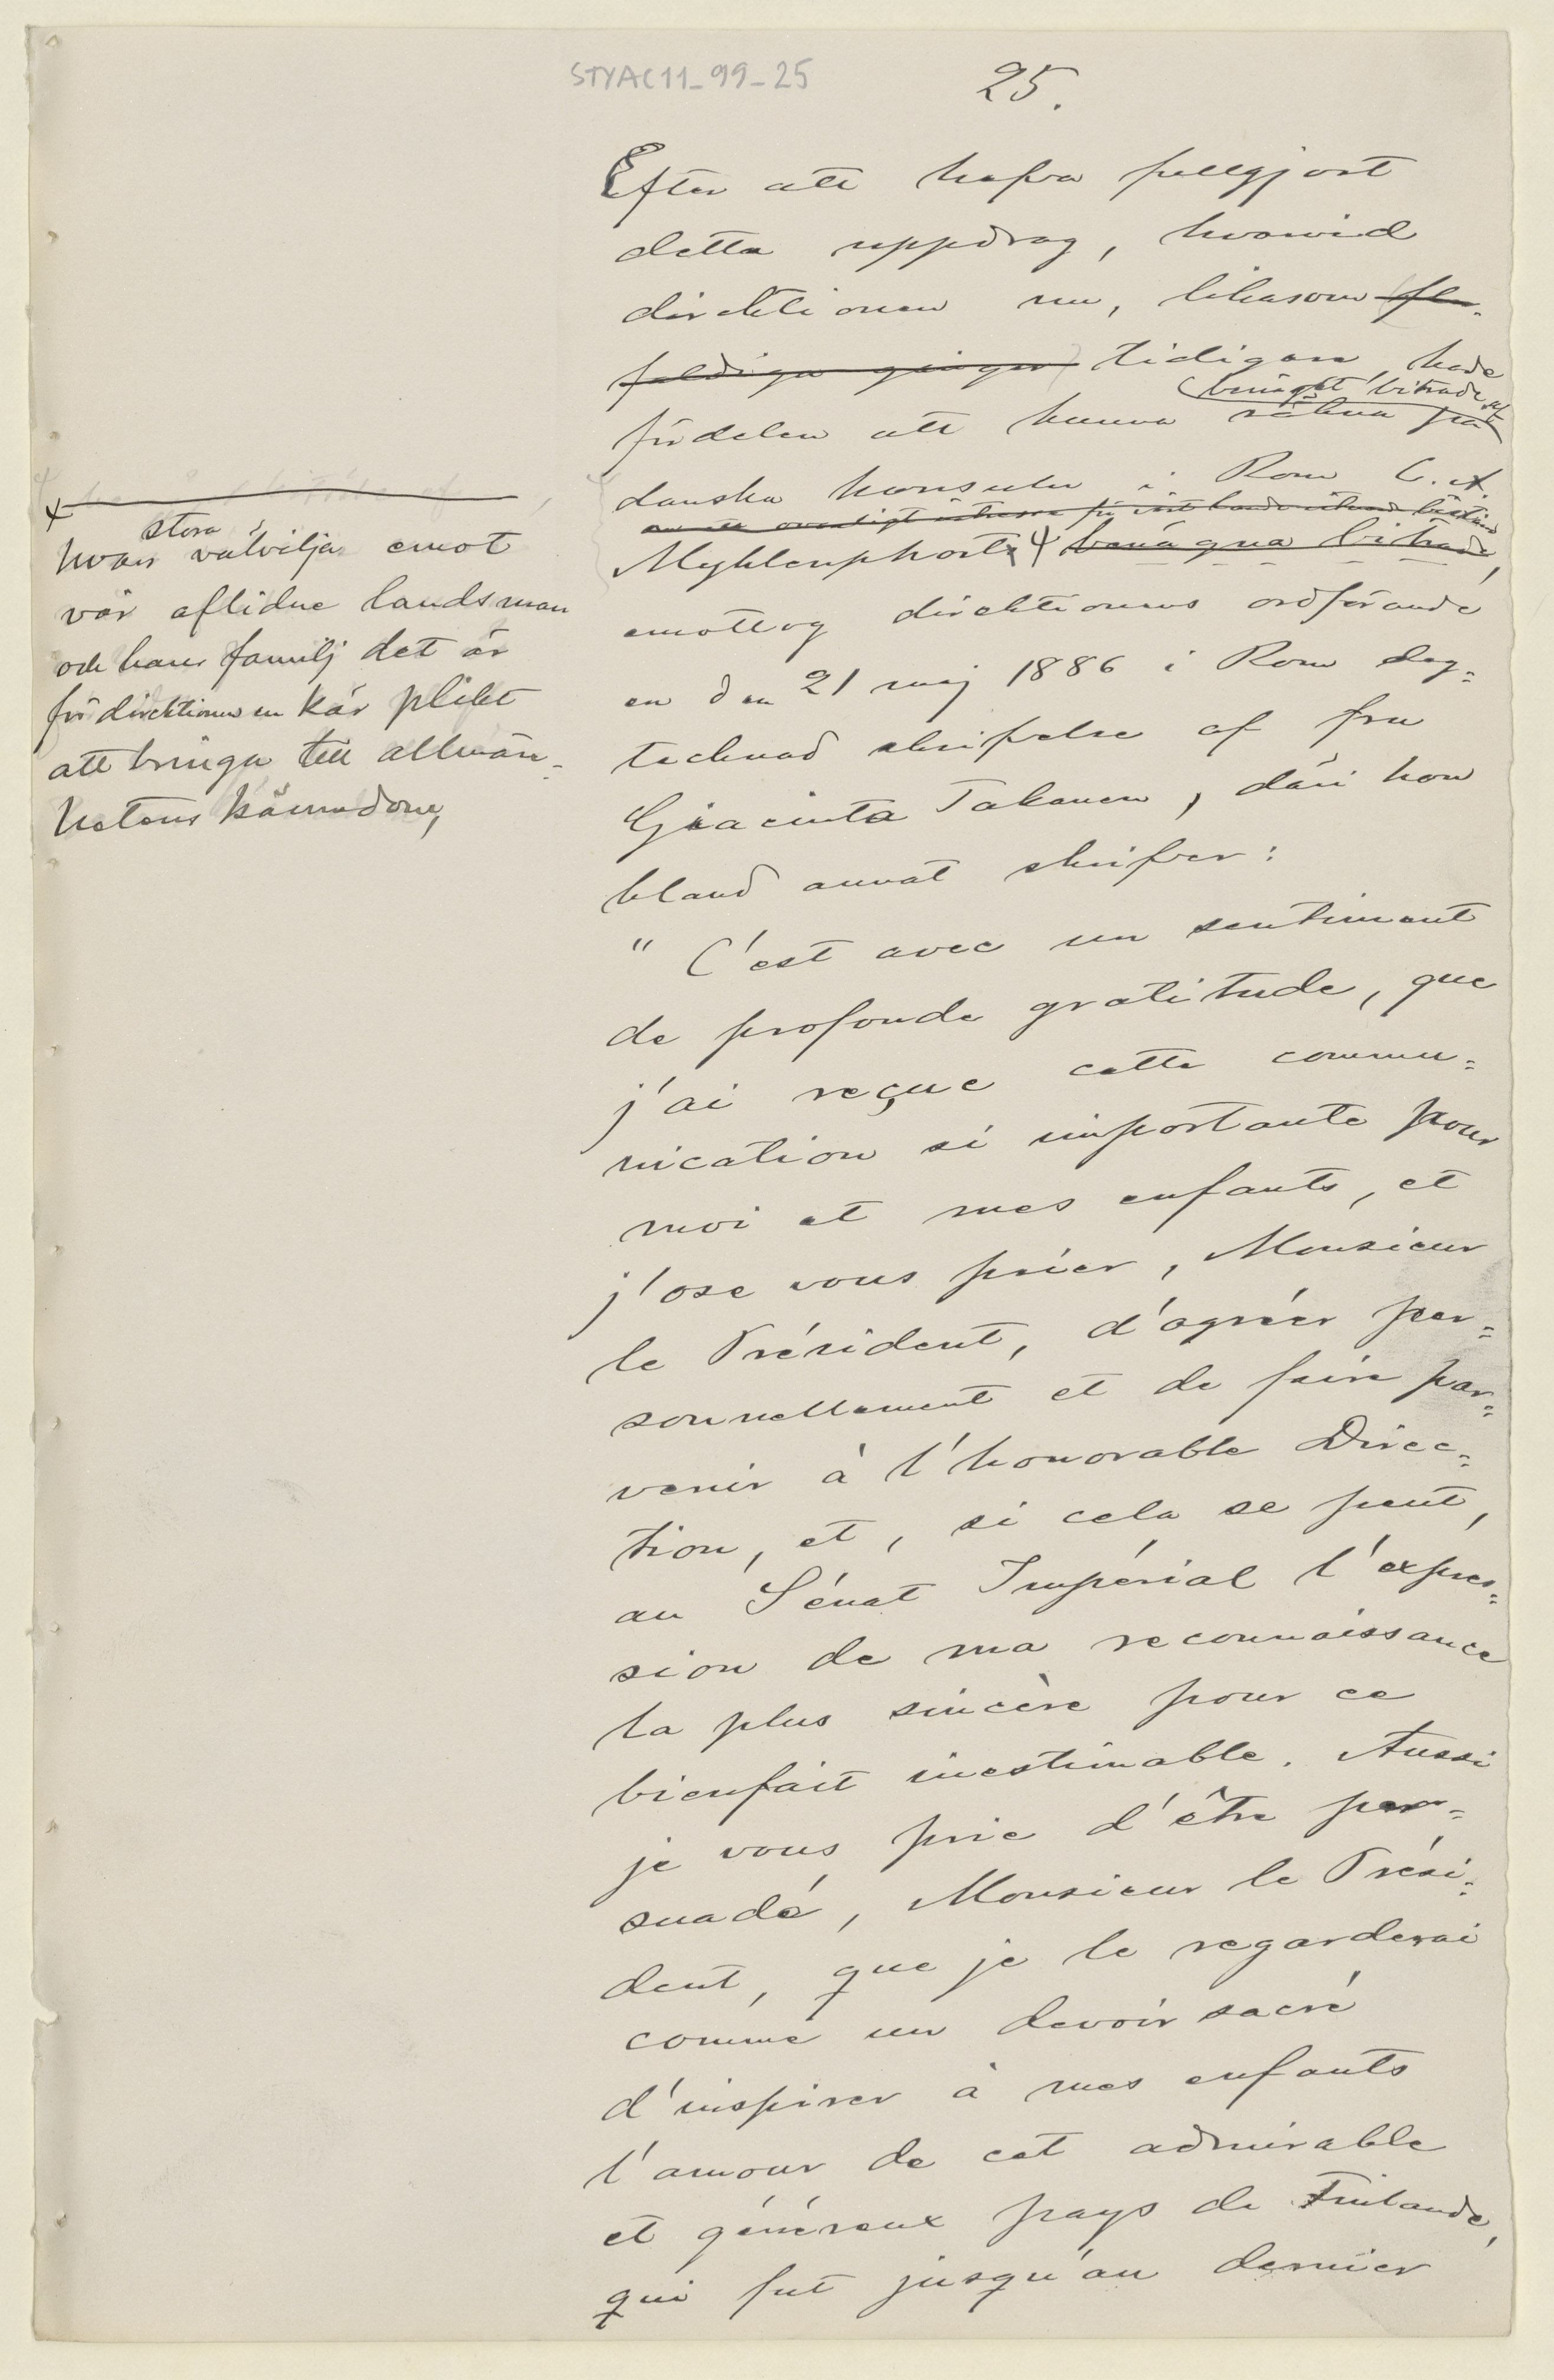 STYAC11_99_25
25.
Efter att hafva fullgjort
detta uppdrag, hvarvid
direktionen nu, likasom fler-
faldiga gånger tidigare, hade
benäget biträde af
fördelen att kunna räkna på
danska konsuln i Rom C. A.
Myhlenphort ⌿ benägna biträde,
emottog direktionens ordförande
en den 21 maj 1886 i Rom dag-
tecknad skrifvelse af fru
Giacinta Takanen, däri hon
bland annat skrifver:
" C'est avec un sentiment
de profonde gratitude, que
j'ai reçue cette commu-
nication si importante pour
moi et mes enfants, et
j'ose vous prier, Monsieur
le Président, d'agréer per-
sonnellement et de faire par-
venir à l'honorable Direc-
tion, et, si cela se peut,
au Sénat Impérial l'expres-
sion de ma reconnaissance
la plus sincère pour ce
bienfait inestimable. Aussi
je vous prie d'être per-
suadé, Monsieur le Prési-
dent, que je le regarderai
comme un devoir sacré
d'inspirer à mes enfants
l'amour de cet admirable
et généreux pays de Finlande,
qui fut jusqu'au dernier
stora
hvars välvilja emot
vår aflidne landsman
och hans familj det är
för direktionen en kär plikt
att bringa till allmän-
hetens kännedom,